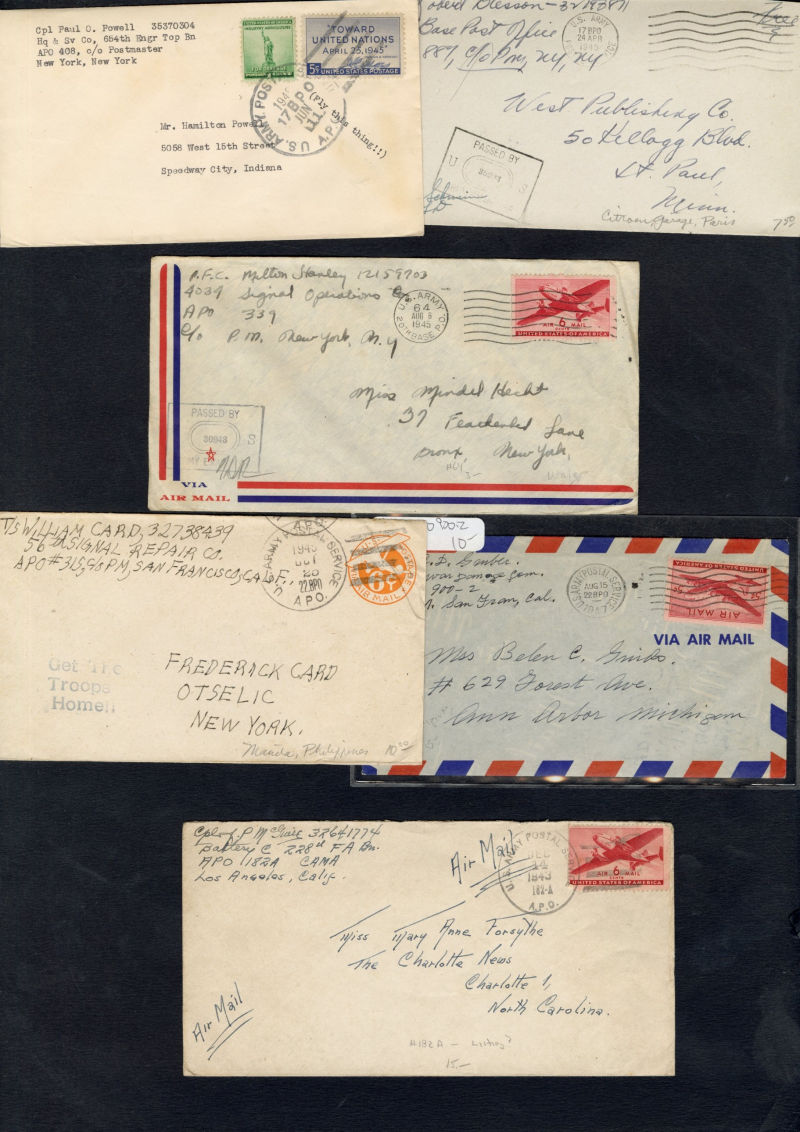 Cpl Paul C. Powell 35370304
Hq & Sv Co, 654th Engr Top Bn
APO 408, c/o Postmaster
New York, New York
"TOWARD
UNITED NATIONS
APRIL 25, 1945"
5¢ UNITED STATES POSTAGE
U.S. ARMY POSTAL
17 BPO
JUN
11
A.P.O.
(Fly this thing!!)
Mr. Hamilton Powell
5058 West 15th Street
Speedway City, Indiana
Base Post Office
887, c/o PM, NY, NY
U.S. ARMY
17 BPO
24 APR
1945
Free
West Publishing Co.
50 Kellogg Blvd.
St. Paul,
Minn.
PASSED BY
U S
Citroen Garage, Paris
7.50
P.F.C. Milton Stanley 12159703
4034 Signal Operations Co
APO 339
c/o P.M. New York, N.Y
U.S. ARMY
64
AUG 6
1945
20TH BASE P.O.
AIR 6 MAIL
CENTS
UNITED STATES OF AMERICA
Miss Mindel Hecht
37 Featherbed Lane
Bronx, New York,
PASSED BY
30943
S
VIA
AIR MAIL
3-
T/5 WILLIAM CARD, 32738439
56th SIGNAL REPAIR CO.
APO #315, % PM, SAN FRANCISCO, CALIF.,
A.P.O.
U.S. ARMY POSTAL SERVICE
1945
OCT
23
22 BPO
A.P.O.
6¢
AIR MAIL
Get The
Troops
Home!!
FREDERICK CARD
OTSELIC
NEW YORK.
Manila, Philippines 10.00
10-
900-2
San Fran, Cal.
U.S. ARMY POSTAL SERVICE
AUG 15
22 BPO
1947
UNITED STATES POSTAGE
5¢ 5¢
AIR MAIL
VIA AIR MAIL
Mrs Belen C.
# 629 Forest Ave.
Ann Arbor Michigan
Cpl P McGuire 32641774
Battery C 228th FA Bn.
APO 182A CAMA
Los Angeles, Calif.
Air Mail
U.S. ARMY POSTAL SERVICE
DEC
14
1943
182-A
A.P.O.
AIR 6 MAIL
CENTS
UNITED STATES OF AMERICA
Miss Mary Anne Forsythe
The Charlotte News
Charlotte 1,
North Carolina.
Air Mail
#182A -
15.-